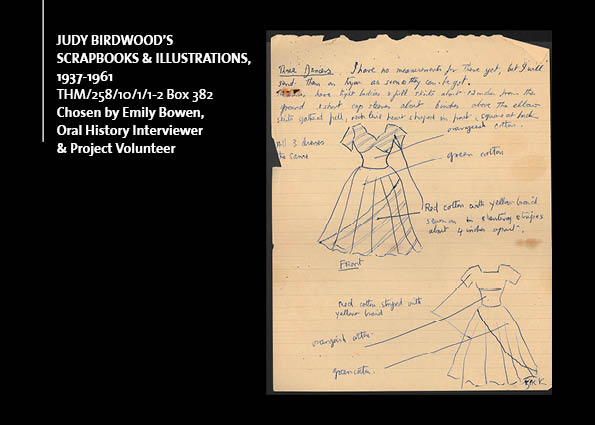 JUDY BIRDWOOD'S
SCRAPBOOKS & ILLUSTRATIONS,
1937-1961
THM/258/10/1/1-2 Box 382
Chosen by Emily Bowen,
Oral History Interviewer
& Project Volunteer
Three Dancers. I have no measurements for these yet, but I will
send them on to you as soon as they can be got.
have tight bodices & full skirts about 12 inches from the
ground & short cap sleeves about 6 inches above the elbow
skirts gathered full, neck line heart shaped in front, square at back.
All 3 dresses
the same
orangeish cotton.
green cotton
Red cotton with yellow braid
sewn on in slanting stripes
about 4 inches apart.
Front
Red cotton striped with
yellow braid
orangeish cotton
green cotton.
Back